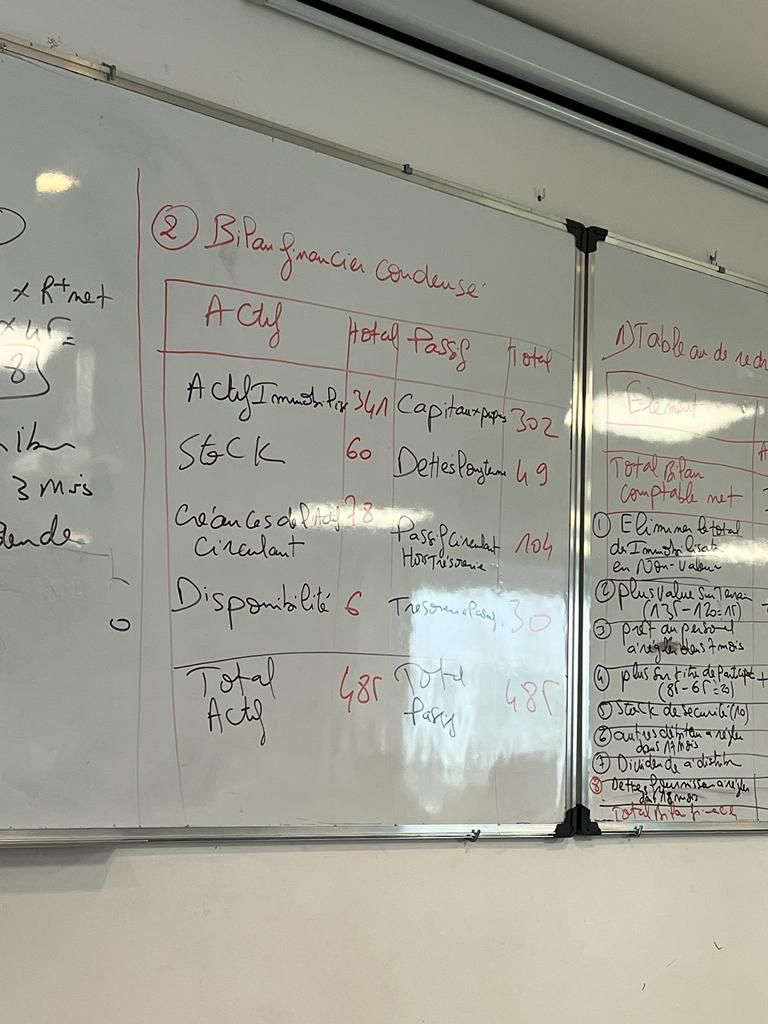 x R+net
x 45 =
8
3 mois
dende
② Bilan financier condensé
Actif Total Passif Total
Actif Immobilisé 341 Capitaux propres 302
Stock 60 Dettes long terme 49
Créances de l'Actif circulant 78 Passif circulant Hors Trésorerie 104
Disponibilité 6 Trésorerie Passif 30
Total Actif 485 Total Passif 485
1) Tableau de red
Elément
Total Bilan
comptable net
① Eliminer le total
des Immobilisat
en Non-Valeur
② plus value sur Terrain
(135-120=15)
③ prêt au personnel
à régler dans 7 mois
④ plus sur titre de particip +
(85-65=20)
⑤ Stock de sécurité (10)
⑥ autres débiteurs à régler
dans 17 mois
⑦ Dividende à distribu
⑧ Dettes fournisseur à régler
dans 18 mois
Total Bilan financ